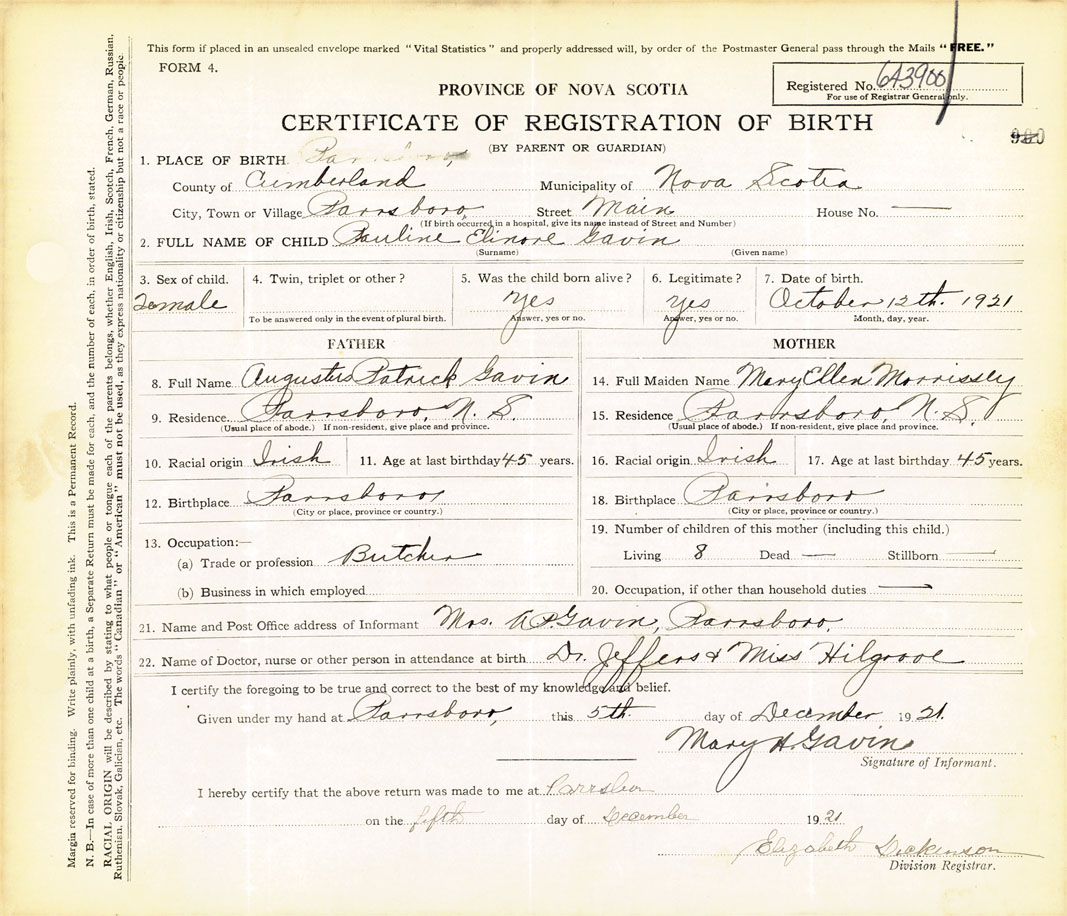 This form if placed in an unsealed envelope marked "Vital Statistics" and properly addressed will, by order of the Postmaster General pass through the Mails "FREE."
FORM 4.
Registered No. 643900
For use of Registrar General only.
PROVINCE OF NOVA SCOTIA
CERTIFICATE OF REGISTRATION OF BIRTH
(BY PARENT OR GUARDIAN)
900
1. PLACE OF BIRTH Parrsboro,
County of Cumberland Municipality of Nova Scotia
City, Town or Village Parrsboro, Street Main House No. —
(If birth occurred in a hospital, give its name instead of Street and Number)
2. FULL NAME OF CHILD Pauline Elinore Gavin
(Surname) (Given name)
3. Sex of child. 4. Twin, triplet or other? 5. Was the child born alive? 6. Legitimate? 7. Date of birth.
Female yes yes October 12th. 1921
To be answered only in the event of plural birth. Answer, yes or no. Answer, yes or no. Month, day, year.
FATHER
8. Full Name Augustus Patrick Gavin
9. Residence Parrsboro, N.S.
(Usual place of abode.) If non-resident, give place and province.
10. Racial origin Irish 11. Age at last birthday 45 years.
12. Birthplace Parrsboro
(City or place, province or country.)
13. Occupation:—
(a) Trade or profession Butcher
(b) Business in which employed
MOTHER
14. Full Maiden Name Mary Ellen Morrissey
15. Residence Parrsboro, N.S.
(Usual place of abode.) If non-resident, give place and province.
16. Racial origin Irish 17. Age at last birthday 45 years.
18. Birthplace Parrsboro
(City or place, province or country.)
19. Number of children of this mother (including this child.)
Living 8 Dead — Stillborn —
20. Occupation, if other than household duties —
21. Name and Post Office address of Informant Mrs. A.P. Gavin, Parrsboro.
22. Name of Doctor, nurse or other person in attendance at birth Dr. Jeffers & Miss Hilgrove
I certify the foregoing to be true and correct to the best of my knowledge and belief.
Given under my hand at Parrsboro, this 5th. day of December 1921.
Mary A. Gavin
Signature of Informant.
I hereby certify that the above return was made to me at Parrsboro
on the fifth day of December 1921
Elizabeth Dickinson
Division Registrar.
Margin reserved for binding. Write plainly, with unfading ink. This is a Permanent Record.
N. B.—In case of more than one child at a birth, a Separate Return must be made for each, and the number of each, in order of birth, stated.
RACIAL ORIGIN will be described by stating to what people or tongue each of the parents belongs, whether English, Irish, Scotch, French, German, Russian,
Ruthenian, Slovak, Galician, etc. The words "Canadian" or "American" must not be used, as they express nationality or citizenship but not a race or people